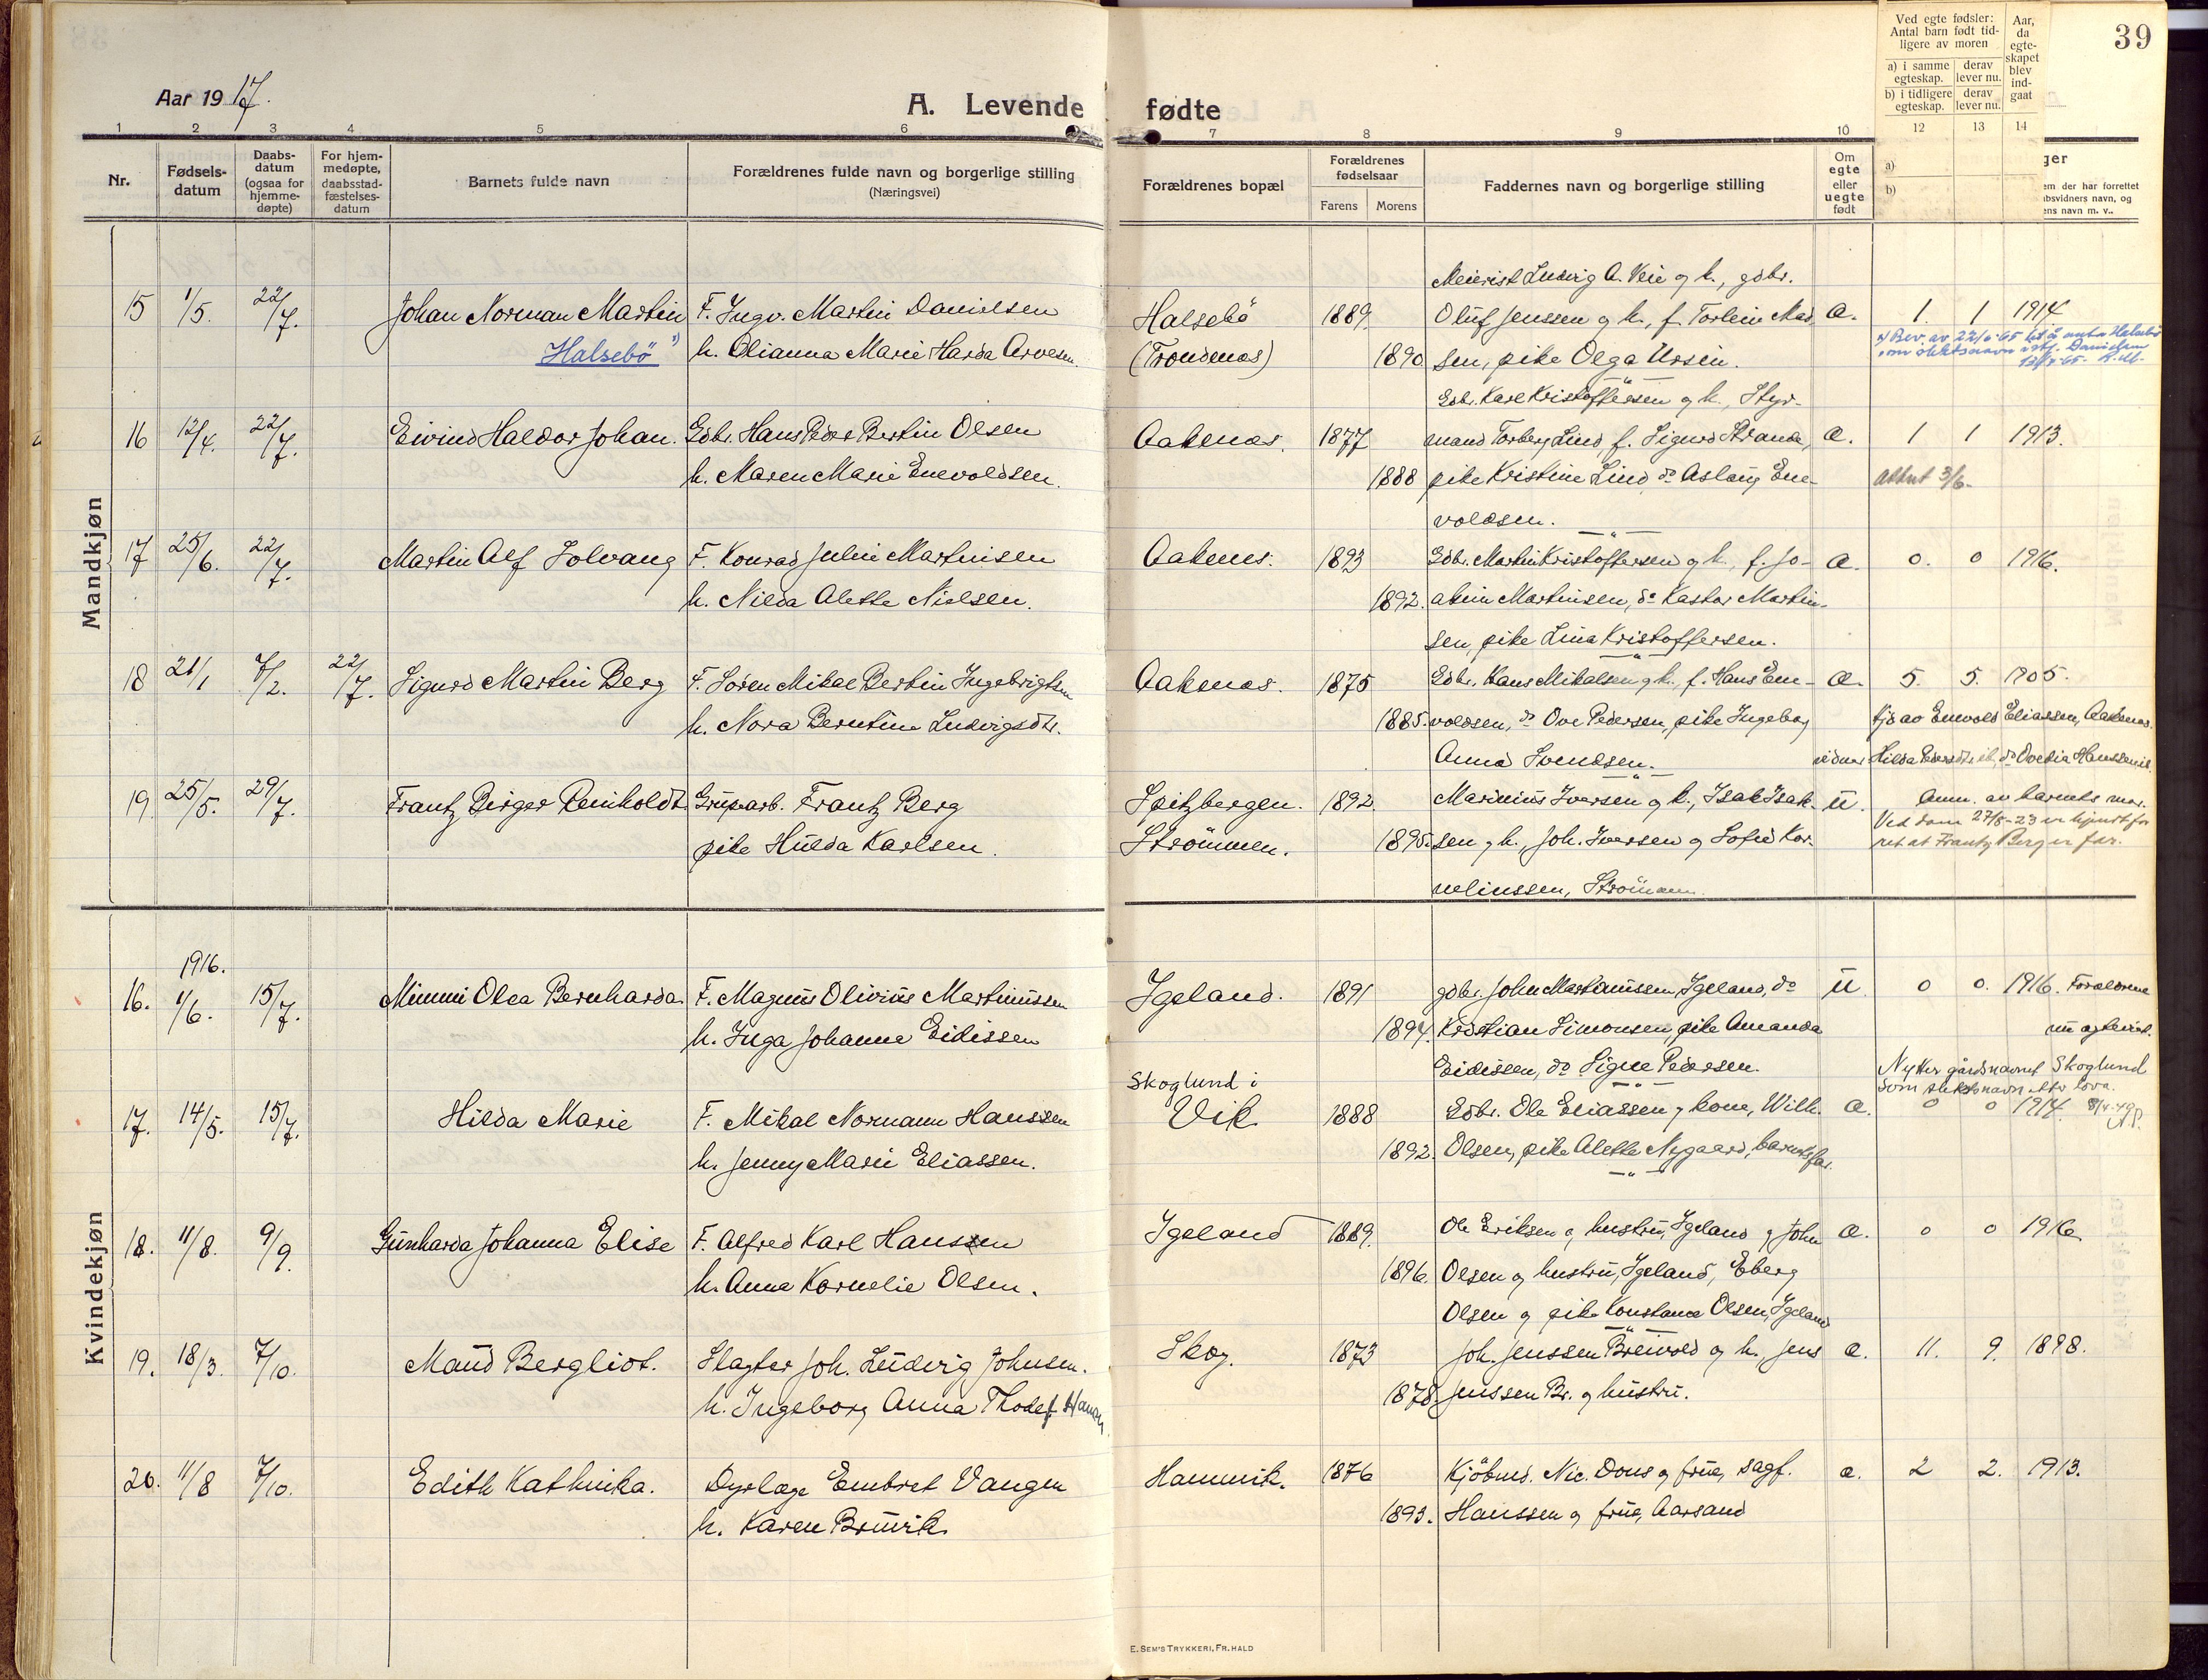 39
Aar 1917.
A. Levende fødte
Ved egte fødsler: Antal barn født tidligere av moren
a) i samme egteskap. derav lever nu.
b) i tidligere egteskap. derav lever nu.
Aar, da egteskapet blev indgaat
1 2 3 4 5 6 7 8 9 10 12 13 14
Nr.
Fødselsdatum
Daabsdatum (ogsaa for hjemmedøpte)
For hjemmedøpte, daabsstadfæstelsesdatum
Barnets fulde navn
Forældrenes fulde navn og borgerlige stilling (Næringsvei)
Forældrenes bopæl
Forældrenes fødselsaar
Farens Morens
Faddernes navn og borgerlige stilling
Om egte eller uegte født
a)
b)
ger
em der har forrettet
bsvidners navn, og
ens navn m. v..
Mandkjøn
Meierist Ludvig A. Veie og h., gdbr.
15 1/5. 22/7. Johan Norman Martin F. Ingv. Martin Danielsen Halsebö 1889 Oluf Jenssen og h., f. Torlein Mad æ. 1. 1 1914
Halsebö 1) h. Olianna Marie Harda Arvesen. (Trondenæs) 1890 sen, pike Olga Ursin.
Gdbr. Karl Kristoffersen og h., Styr-
16 12/4. 22/7. Eivind Haldor Johan. Gdbr. Hans Peder Bertin Olsen Aakenæs. 1877 mand Torberg Lind, f. Sigurd Strand, æ. 1 1 1913.
h. Maren Marie Enevoldsen. 1888 pike Kristine Lind, do Aslaug Ene- attut 3/6-
voldsen.
17 25/6. 22/7. Martin Alf Solvang F. Konrad Julin Martinisen Aakenes. 1893 Gdbr. Martin Kristoffersen og h., f. Jo- æ. 0. 0 1916.
h. Nilda Alette Nielsen. 1892. akim Martinsen, do Kastor Martin-
sen, pike Lina Kristoffersen.
18 21/1 7/2. 22/7. Sigurd Martin Berg F. Sören Mikal Bertin Ingebrigtsen Aakenæs. 1875 Gdbr. Hans Mikalsen og h., f. Hans Ene- æ. 5. 5. 1905.
h. Nora Berntine Ludvigsdtr. 1885. voldsen, do Ove Pedersen, pike Ingeborg hjd av Enevold Eliassen, Aakenæs.
Anna Svendsen. vidner Hilda Pedersdtr ib., do Ovedia Hanssen ib.
19. 25/5. 29/7. Frantz Birger Reinholdt Grubearb. Frantz Berg Spitzbergen. 1892 Marinius Iversen og h., Isak Isak- u. Anm. av barnets mor.
pike Hulda Karlsen. Strömmen. 1895 sen og h., Joh. Iversen og Sofie Kor- Ved dom 27/8-23 er kjendt for
neliussen, Strömmen. ret at Frantz Berg er far.
Kvindekjøn
1916.
16. 1/6. 15/7. Mimmi Olea Bernharda. F. Magnus Olivius Martinussen Igeland. 1891 gdbr. John Martinussen, Igeland, do u 0 0. 1916. Forældrene
h. Inga Johanne Eidissen 1894. Kristian Simonsen, pike Amanda nu egteviet.
Eidissen, do Signe Pedersen.
Skoglund i Nytter gårdsnavnet Skoglund
som slektsnavn etter lova.
17. 14/5. 15/7. Hilda Marie F. Mikal Normann Hanssen Vik 1888 Gdbr. Ole Eliassen og kone, Wilh. æ. 0 0 1914.
h. Jenny Marie Eliassen. 1892. Olsen, pike Alette Nygaard, barnets far.
18. 11/8. 9/9. Gunharda Johanna Elise F. Alfred Karl Hanssen Igeland 1889. Ole Eriksen og hustru, Igeland og John æ. 0 0 1916
h. Anna Kornelie Olsen. 1896 Olsen og hustru, Igeland, Eberg
Olsen og pike Konstance Olsen, Igeland
19. 18/3. 7/10. Maud Bergliot. Slagter Joh. Ludvig Johnsen. Skog. 1873 Joh. Jenssen Breivold og h., Jens æ. 11. 9. 1898.
h. Ingeborg Anna Thode 1878. Jenssen Br. og hustru.
20. 11/8 7/10. Edith Kathinka. Dyrlæge Embret Vangen Hamnvik. 1876 Kjöbmd. Nic. Dons og frue, sagf. æ. 2 2. 1913.
h. Karen Bruvik 1893. Hanssen og frue, Aarsand
E. SEM'S TRYKKERI, FR. HALD